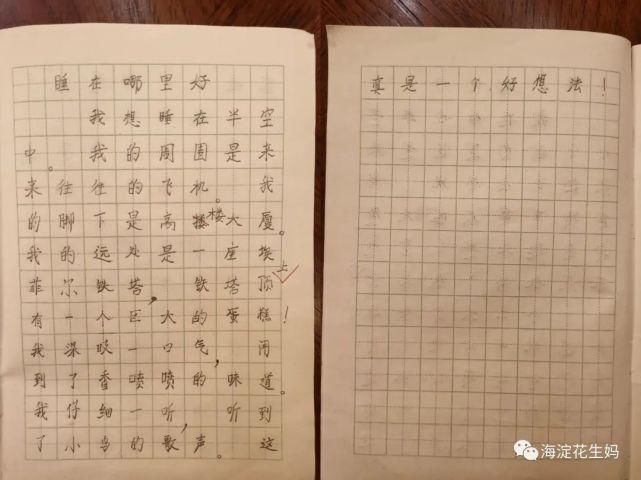 睡在哪里好
我想睡在半空
中。我的周围是来
来往往的飞机。我
的脚下是高楼大厦。
我的远处是一座埃
菲尔铁塔，铁塔顶上
有一个巨大的蛋糕！
我深吸一口气，闻
到了香喷喷的味道。
我仔细一听，听到
了小鸟的歌声。这
真是一个好想法！
海淀花生妈